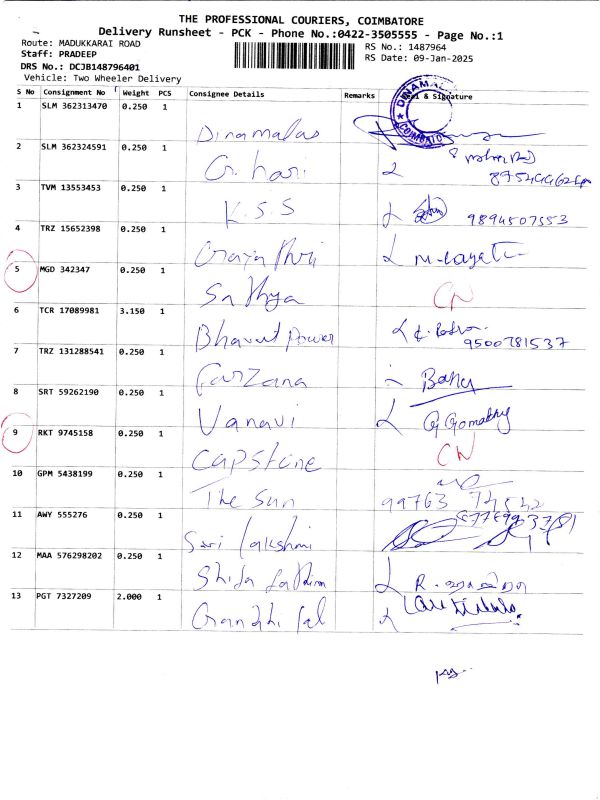 THE PROFESSIONAL COURIERS, COIMBATORE
Delivery Runsheet - PCK - Phone No.:0422-3505555 - Page No.:1
Route: MADUKKARAI ROAD
RS No.: 1487964
Staff: PRADEEP
RS Date: 09-Jan-2025
DRS No.: DCJB148796401
Vehicle: Two Wheeler Delivery
S No Consignment No Weight PCS Consignee Details Remarks & Signature
DINAMA
COIMBATO
1 SLM 362313470 0.250 1 Dinamalar
2 SLM 362324591 0.250 1 G. hari
3 TVM 13553453 0.250 1 K.S.S 9894507553
4 TRZ 15652398 0.250 1
5 MGD 342347 0.250 1 Sathya CN
6 TCR 17089981 3.150 1 Bharat Power 9500781537
7 TRZ 131288541 0.250 1 Farzana Banu
8 SRT 59262190 0.250 1 Vanavi G Gomathy
9 RKT 9745158 0.250 1 Capstone CN
10 GPM 5438199 0.250 1 The Sun 99763
11 AWY 555276 0.250 1 Sari lakshmi
12 MAA 576298202 0.250 1 R.
13 PGT 7327209 2.000 1